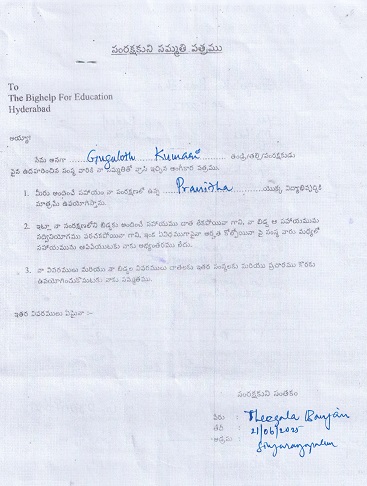 సంరక్షకుని సమ్మతి పత్రము
To
The Bighelp For Education
Hyderabad
అయ్యా!
నేను అనగా Guguloth Kumari తండ్రి/తల్లి/సంరక్షకుడు
పైన ఉదహరించిన సంస్థ వారికి నా సమ్మతితో వ్రాసి ఇచ్చిన అంగీకార పత్రము.
1. మీరు అందించే సహాయం నా సంరక్షణలో ఉన్న Pranitha యొక్క విద్యాభివృద్ధికి
మాత్రమే ఉపయోగిస్తాను.
2. ఇట్లా నా సంరక్షణలోని బిడ్డకు అందించే సహాయము దాత లేకపోయినా గాని, నా బిడ్డ ఆ సహాయమును
సద్వినియోగము పరచకపోయినా గాని, ఇంక ఏవిధముగానైనా అర్హత కోల్పోయినా పై సంస్థ వారు మధ్యలో
సహాయమును ఆపివేయుటకు నాకు అభ్యంతరము లేదు.
3. నా వివరములు మరియు నా బిడ్డల వివరములు దాతలకు ఇతర సంస్థలకు మరియు ప్రచారము కొరకు
ఉపయోగించుకొనుటకు నాకు సమ్మతము.
ఇతర వివరములు ఏమైనా :-
సంరక్షకుని సంతకం
పేరు :
తేదీ : 21/06/2025
అడ్రసు :